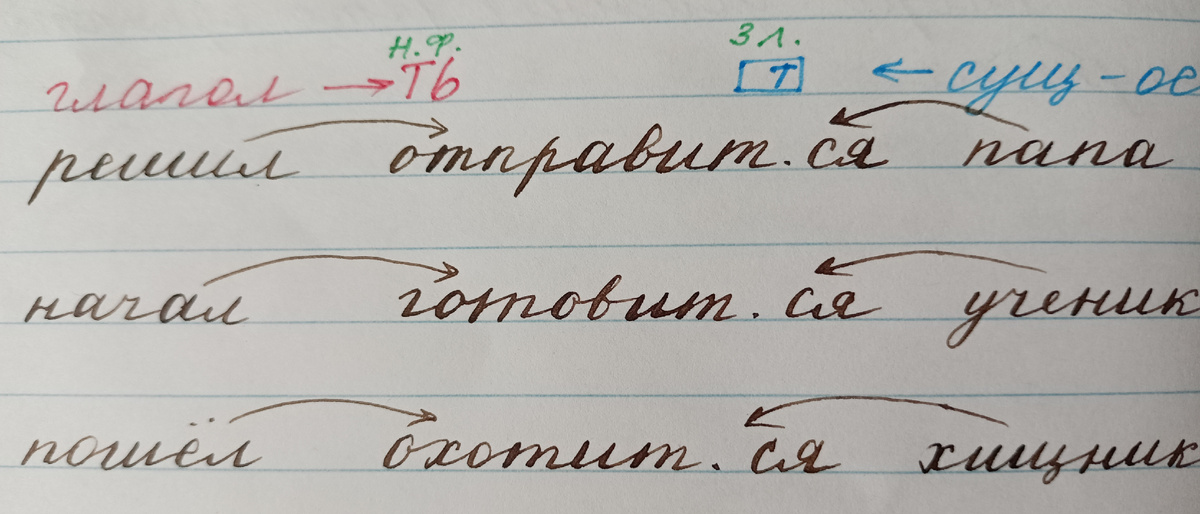 н.ф. 3 л.
глагол → ть т ← сущ-ое
решил отправит.ся папа
начал готовит.ся ученик
пошёл охотит.ся хищник